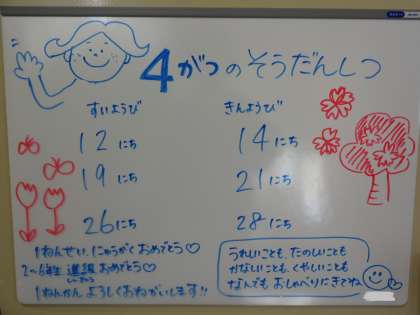 4がつのそうだんしつ
すいようび きんようび
12にち 14にち
19にち 21にち
26にち 28にち
1ねんせい、にゅうがくおめでとう♡
2〜6年生 進級おめでとう♡
しんきゅう
1ねんかん よろしくおねがいします!!
うれしいことも、たのしいことも
かなしいことも、くやしいことも
なんでも おしゃべりにきてね